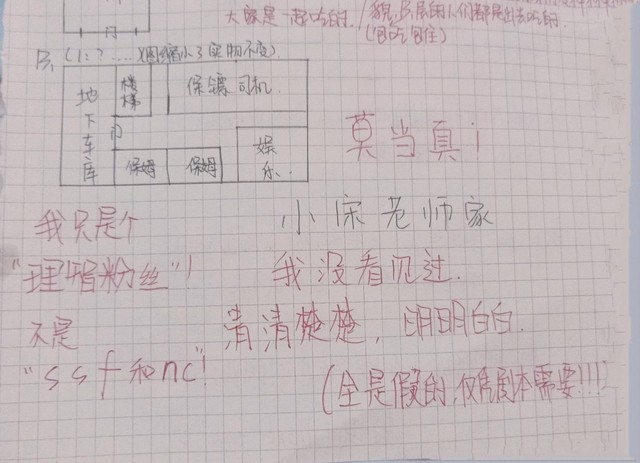 门
大家是一起吃的./
B₁ (1:?....)(图缩小了实物不变)
(包吃包住)
地下车库
楼梯
保镖司机.
门
保姆
保姆
娱乐.
莫当真!
我只是个
"理智粉丝"!
不是
"ssf和nc"!
小宋老师家
我没看见过.
清清楚楚,明明白白.
(全是假的,仅凭剧本需要!!!